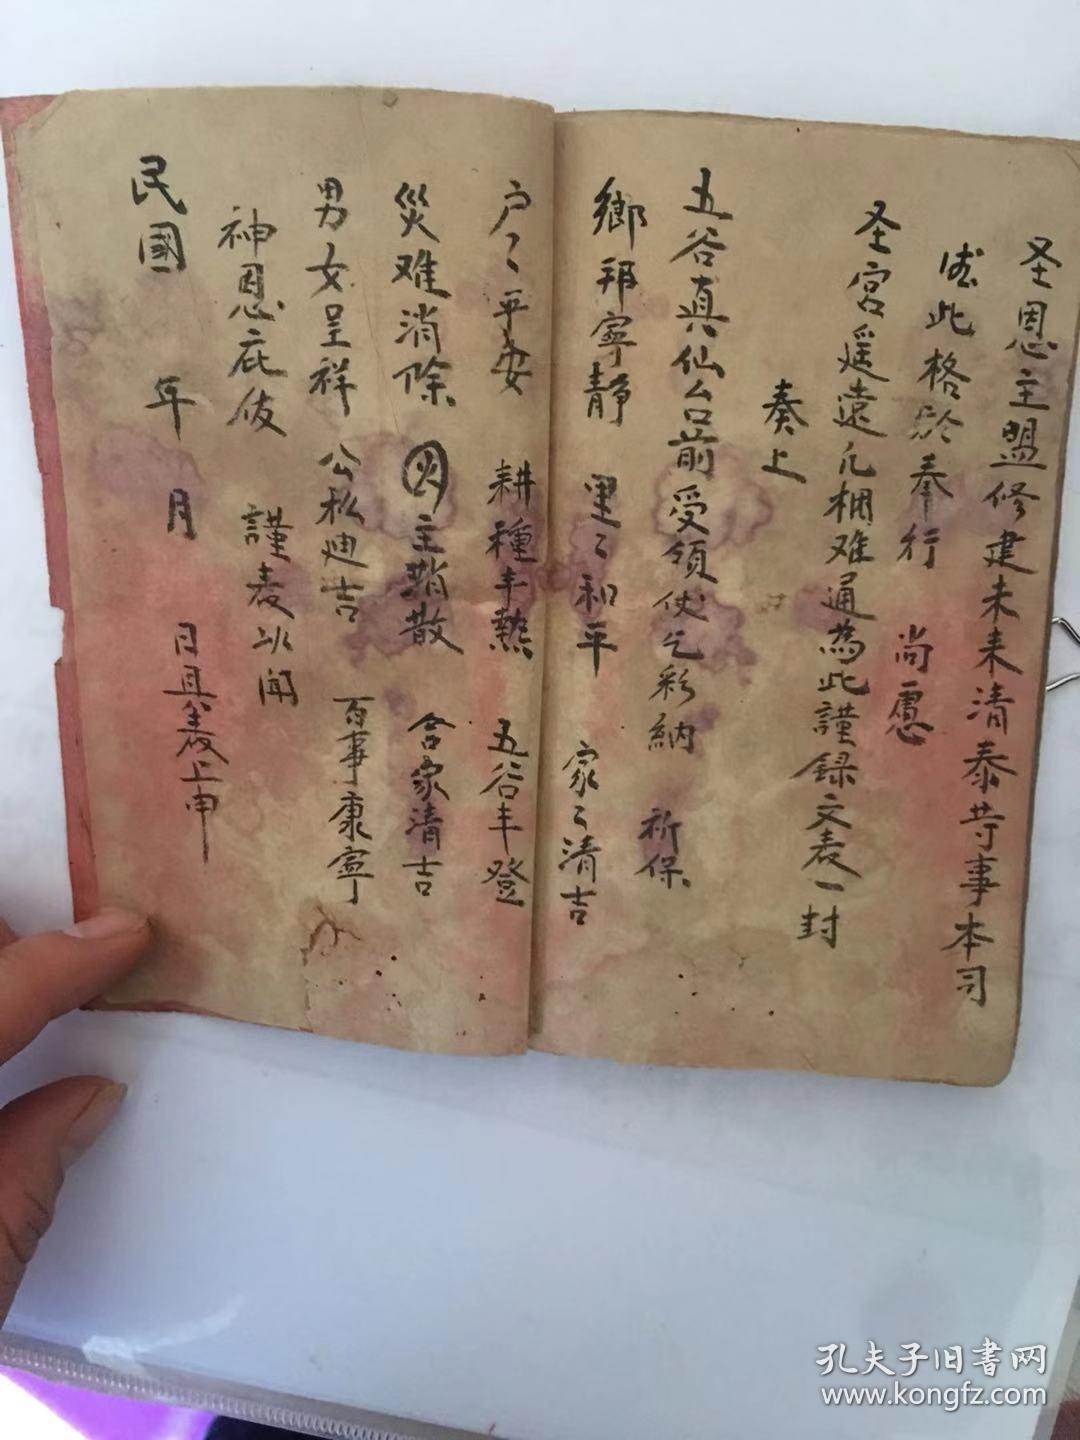 圣恩主盟修建未来清泰茓事本司
㨿此格於奉行 尚慮
圣宫遥遠凡梱难通為此謹録文表一封
奏上
五谷真仙台前受领伏乞彩納 祈保
鄉邦寧静 里〻和平 家〻清吉
户〻平安 耕種丰熟 五谷丰登
災难消除 主消散 合家清吉
男女呈祥 公私迪吉 百事康寧
神恩庇佑 謹表以闻
民國 年 月 日具表上申
孔夫子旧書网
www.kongfz.com